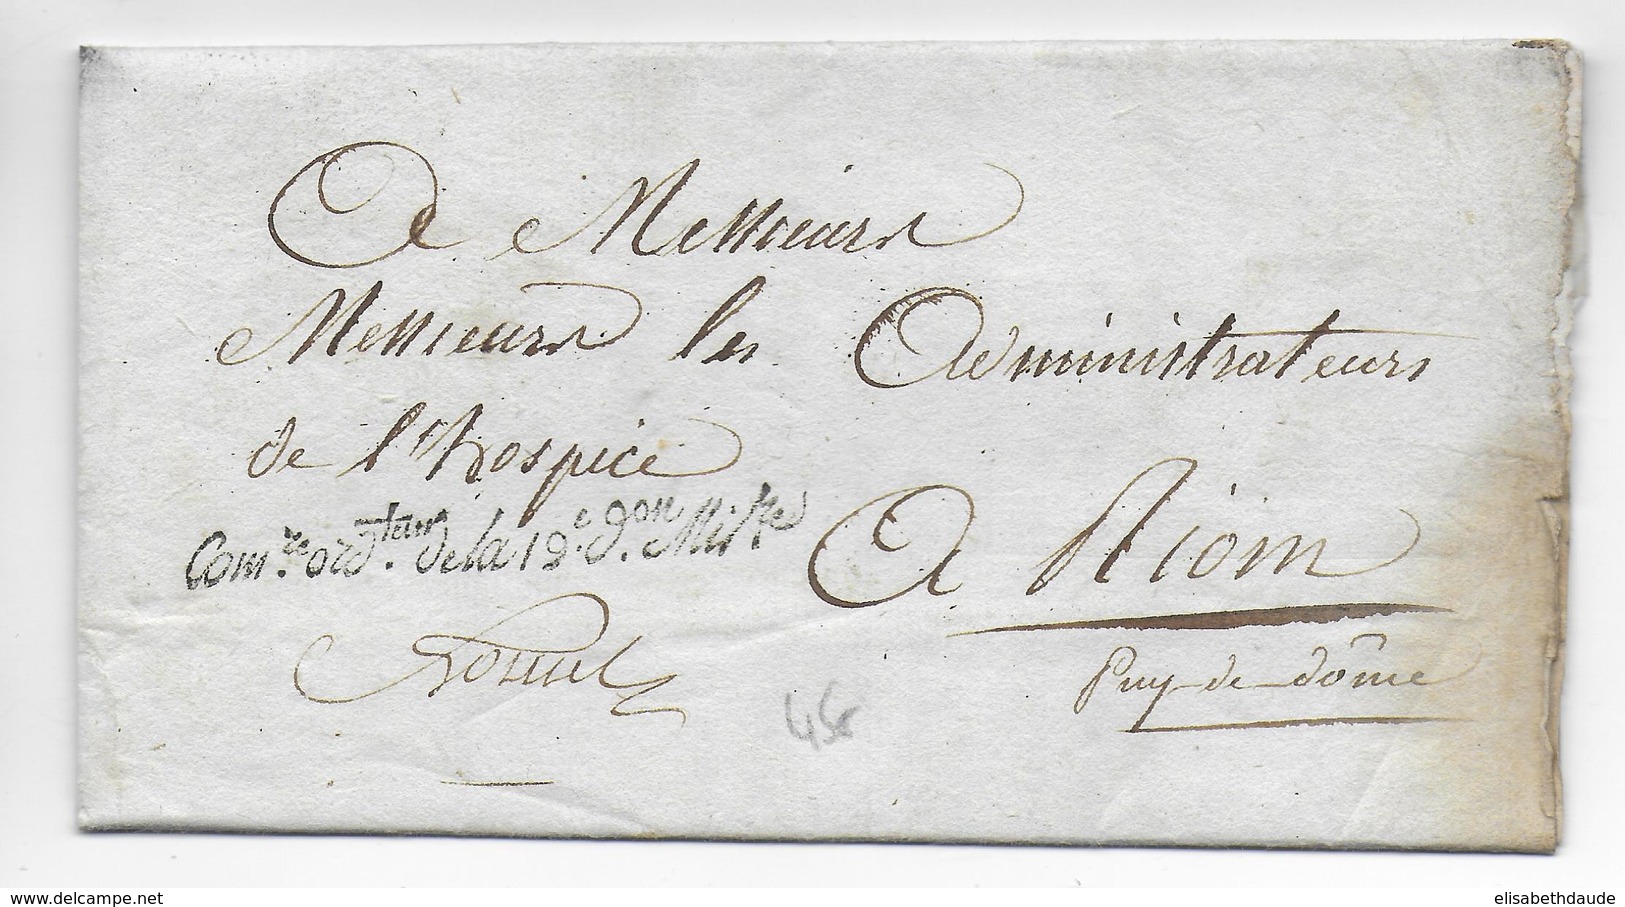 A Messieurs
Messieurs les Administrateurs
de l'hospice
Com.re ord.teur de la 19.e d.on Mil.re
A Riom
Puy-de-dôme
45€
elisabethdaude